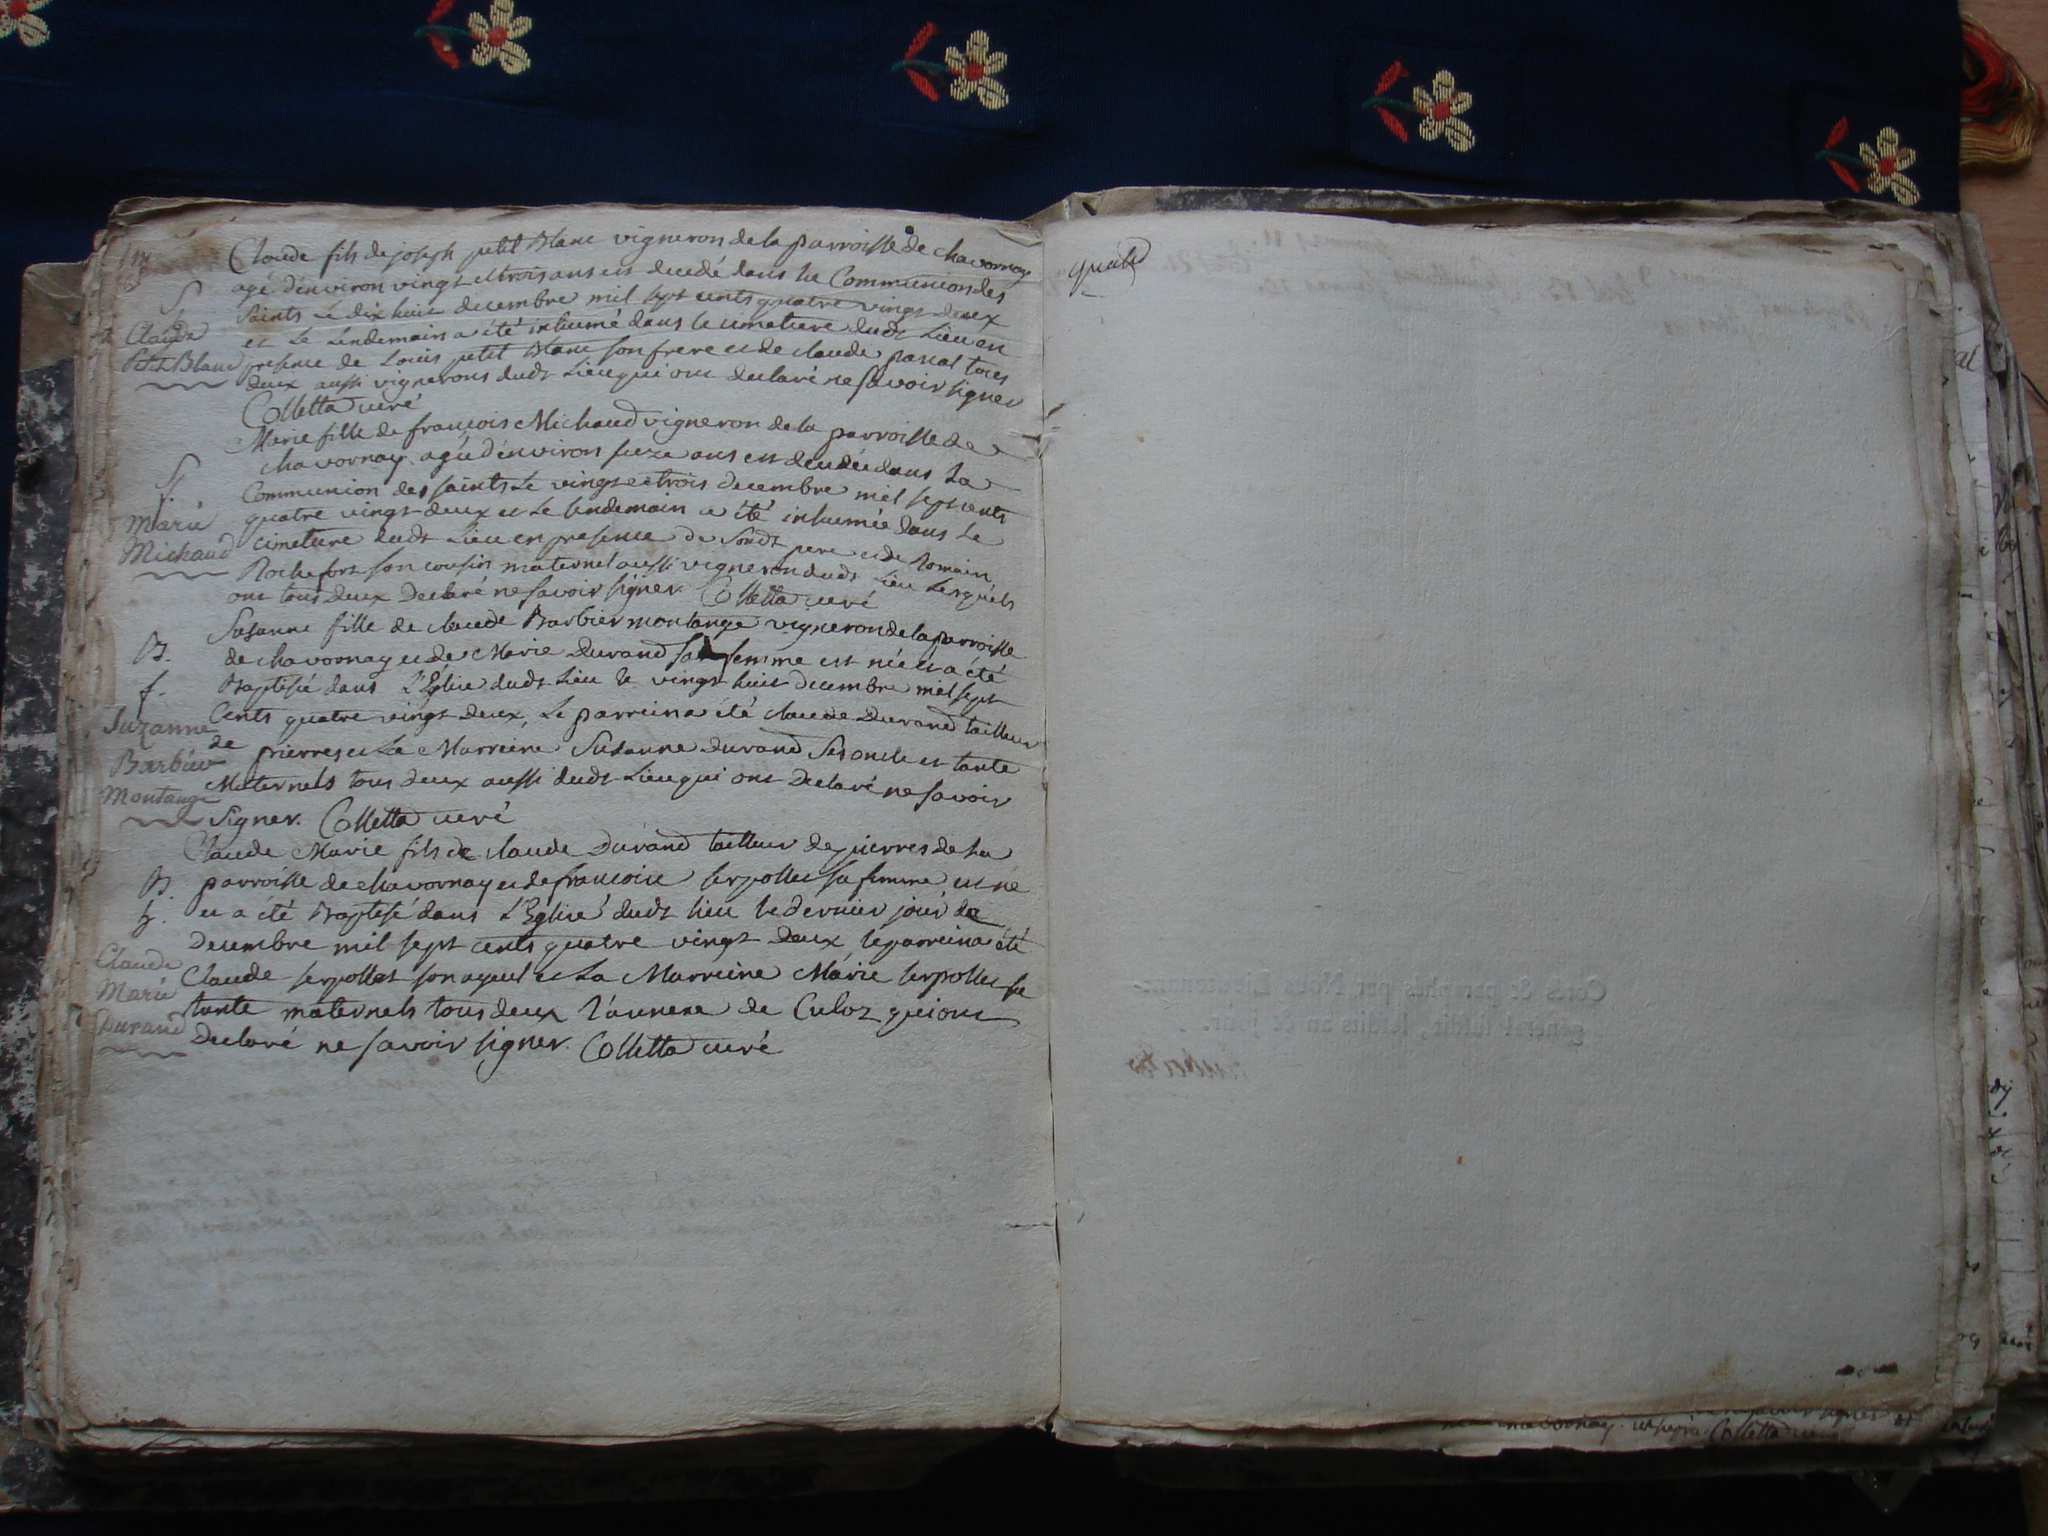 Claude fils de joseph petit Blanc vigneron de la parroisse de chavornay
agé d'environ vingt et trois ans est decedé dans la Communion des
saints Le dix huit decembre mil sept cents quatre vingt deux
et Le Lendemain a été inhumé dans le cimetiere dudt Lieu en
presence de Louis petit Blanc son frere et de claude pascal tous
deux aussi vignerons dudt Lieu qui ont declaré ne savoir signer
Colletta curé
S.
Claude
Petit Blanc
Marie fille de francois Michaud vigneron de la parroisse de
chavornay agée d'environ seize ans est decedée dans La
Communion des saints Le vingt et trois decembre mil sept cents
quatre vingt deux et Le lendemain a été inhumée dans Le
cimetiere dudt Lieu en presence de Sondt pere et de Romain
Rochefort son cousin maternel aussi vigneron dudt Lieu Lesquels
ont tous deux Declaré ne savoir signer. Colletta curé
S.
f.
Marie
Michaud
Susanne fille de claude Barbier montange vigneron de la parroisse
de chavornay et de Marie Durand sa femme est née et a été
Baptisée dans L'Eglise dudt Lieu le vingt huit decembre mil sept
Cents quatre vingt deux, Le parrein a été claude Durand tailleur
de pierres et La Marreine Susanne Durand Ses oncle et tante
Maternels tous deux aussi dudt Lieu qui ont Declaré ne savoir
Signer. Colletta curé
B.
f.
Suzanne
Barbier
Montange
Claude Marie fils de claude Durand tailleur de pierres de La
parroisse de chavornay et de francoise serpollet sa femme est né
et a été Baptisé dans L'Eglise dudt lieu le dernier jour de
decembre mil sept cents quatre vingt deux le parrein a été
Claude serpollet son ayeul et La Marreine Marie serpollet sa
tante maternels tous deux de Culoz qui ont
Declaré ne savoir signer. Colletta curé
B.
Claude
Marie
Durand
Colletta